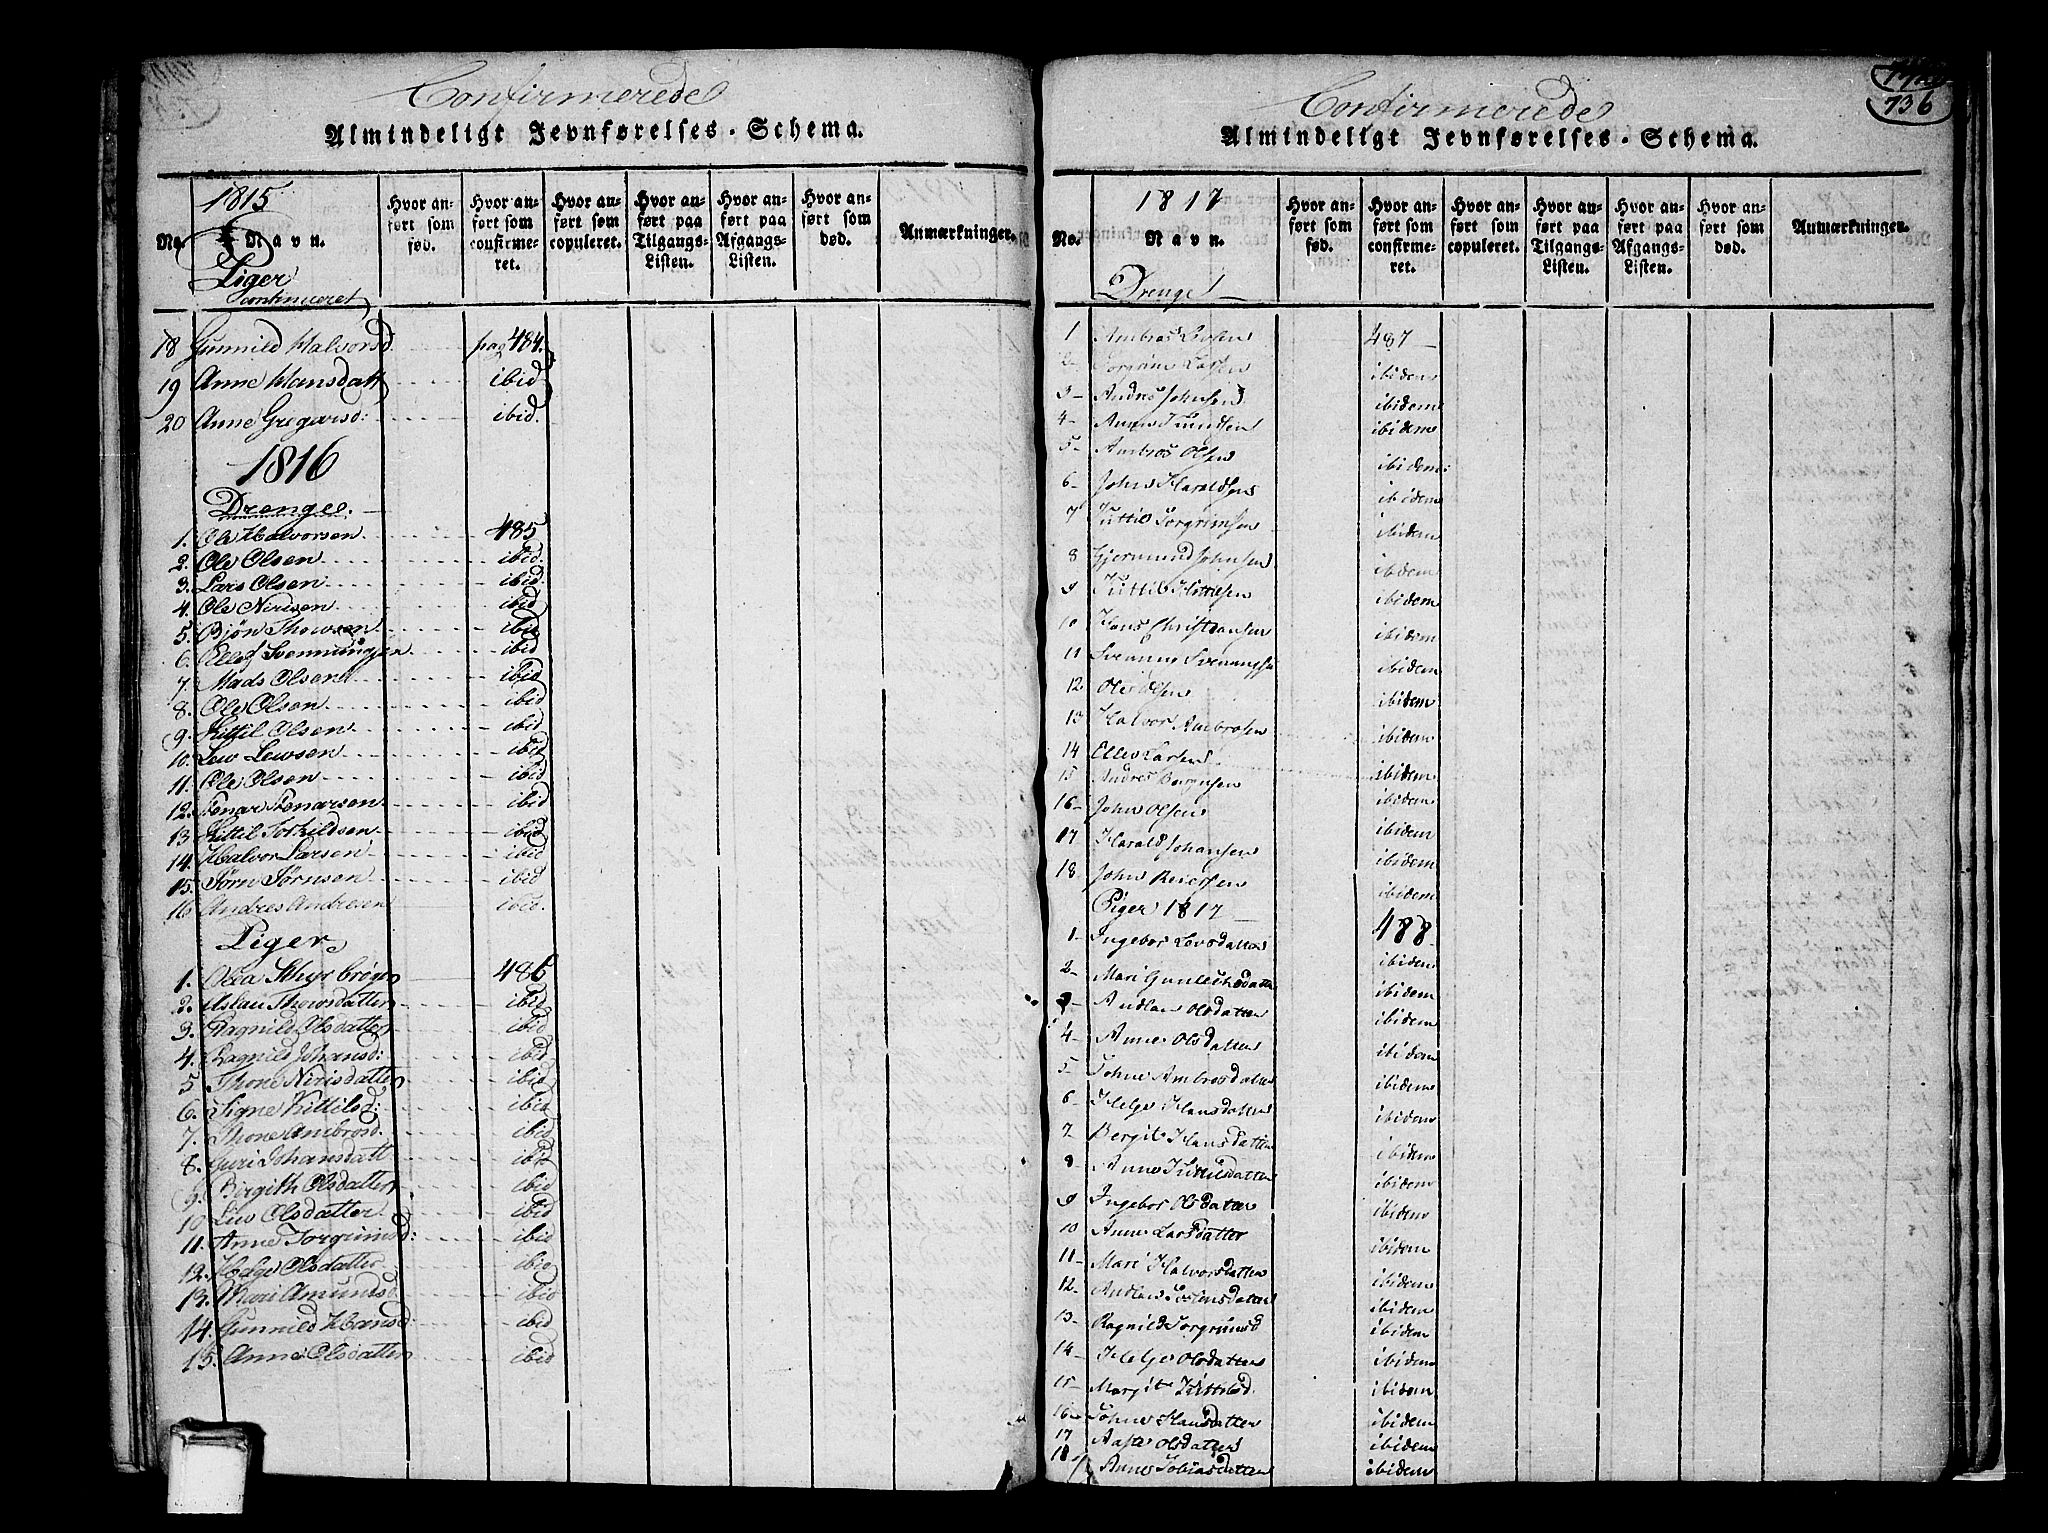 Confirmerede
Almindeligt Jevnførelses-Schema.
1815
No. Navn. Hvor anført som fød. Hvor anført som confirmeret. Hvor anført som copuleret. Hvor anført paa Tilgangs-Listen. Hvor anført paa Afgangs-Listen. Hvor anført som død. Anmærkninger.
Piger
continueret
18 Gunnild Halvorsd. pag 484.
19 Anne Hansdatt ibid
20 Anne Gregarsd: ibid.
1816
Drenge.
1. Ole Halvorsen 485
2. Ole Olsen ibid.
3. Lars Olsen ibid.
4. Ole Nirisen ibid
5. Bjøn Thowsen ibid
6. Ellef Svennungsen ibid
7. Mads Olsen ibid
8. Ole Olsen ibid
9. Kittil Olsen ibid
10. Lew Lewsen ibid
11. Ole Olsen ibid
12. Stenar Stenarsen ibid
13 Kittil Torkildsen ibid
14. Halvor Larsen ibid
15. Jørn Jørnsen ibid
16 Andres Andresen ibid.
Piger
1. Olea 486
2. Aslau Thowsdatter ibid
3. Ragnild Olsdatter ibid
4. Ragnild Johansd: ibid
5 Thone Nirisdatter ibid
6. Signe Kittilsd: ibid
7. Thone Ambrosd. ibid
8. Guri Johansdatt ibid
9. Birgith Olsdatter ibid
10 Liv Olsdatter ibid
11. Anne Torgrimsd: ibid
12. Helge Olsdatter ibid
13. Mari Amundsd. ibid
14. Gunnild Hansd: ibid
15. Anne Olsdatter ibid
736
Confirmerede
Almindeligt Jevnførelses-Schema.
1817
No. Navn. Hvor anført som fød. Hvor anført som confirmeret. Hvor anført som copuleret. Hvor anført paa Tilgangs-Listen. Hvor anført paa Afgangs-Listen. Hvor anført som død. Anmærkninger.
Drenge
1 Ambros 487
2- Torgrim Larsen ibidem
3- Andres Johnsen ibidem
4- Knudsen ibidem
5- Ambros Olsen ibidem
6- John Haraldsen ibidem
7 Kittil Torgrimsen ibidem
8 Gjermund Johnsen ibidem
9 Kittil Kittilsen ibidem
10 Hans Christiansen ibidem
11 Svennung Svennungsen ibidem
12 Ole Olsen ibidem
13 Halvor Ambrosen ibidem
14 Ellev Larsen ibidem
15 Andres ibidem
16- John Olsen ibidem
17 Harald Johansen ibidem
18. John Reiersen ibidem
Piger 1817
488
1- Ingebor Lovsdatter ibidem
2- Mari Gunleichsdatter ibidem
3- Andlau Olsdatter ibidem
4- Anne Olsdatter ibidem
5- Tohne Ambrosdatter ibidem
6- Helge Hansdatter ibidem
7- Bergit Hansdatter ibidem
8- Anne Kittilsdatter ibidem
9 Ingebor Olsdatter ibidem
10 Anne Larsdatter ibidem
11- Mari Halvorsdatter ibidem
12. Andlau ibidem
13- Ragnild Torgrimsd ibidem
14- Helge Olsdatter ibidem
15- Margit Kittilsd. ibidem
16- Tohne Hansdatter ibidem
17 Aaste Olsdatter ibidem
18. Anne Tobiasdatter ibidem